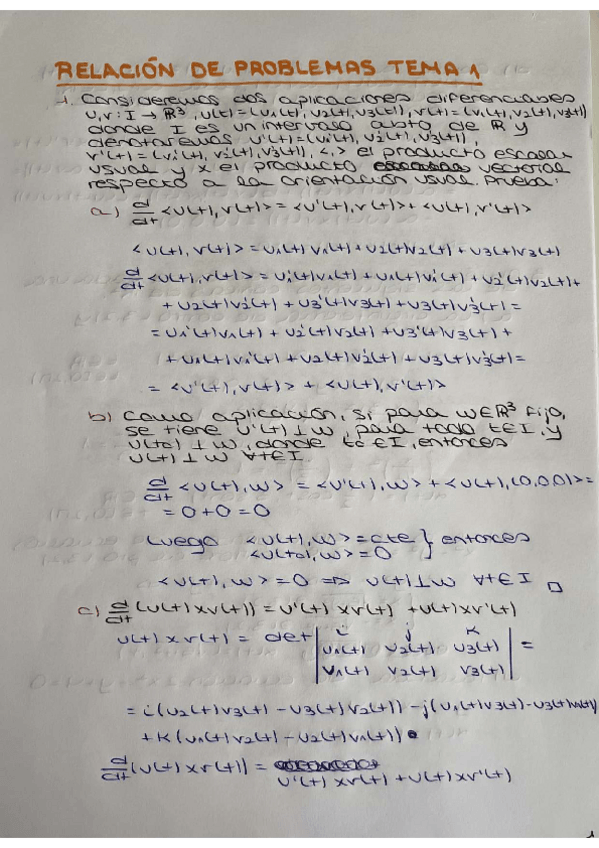 RELACIÓN DE PROBLEMAS TEMA 1
1. Consideremos dos aplicaciones diferenciables
u,v: I → ℝ³, u(t)=(u₁(t), u₂(t), u₃(t)), v(t)=(v₁(t), v₂(t), v₃(t))
donde I es un intervalo abierto de ℝ y
denotaremos u'(t)=(u₁'(t), u₂'(t), u₃'(t)),
v'(t)=(v₁'(t), v₂'(t), v₃'(t)), <,> el producto escalar
usual y × el producto vectorial
respecto a la orientación usual. Prueba:
a) d/dt <u(t), v(t)> = <u'(t), v(t)> + <u(t), v'(t)>
<u(t), v(t)> = u₁(t)v₁(t) + u₂(t)v₂(t) + u₃(t)v₃(t)
d/dt <u(t), v(t)> = u₁'(t)v₁(t) + u₁(t)v₁'(t) + u₂'(t)v₂(t) +
+ u₂(t)v₂'(t) + u₃'(t)v₃(t) + u₃(t)v₃'(t) =
= u₁'(t)v₁(t) + u₂'(t)v₂(t) + u₃'(t)v₃(t) +
+ u₁(t)v₁'(t) + u₂(t)v₂'(t) + u₃(t)v₃'(t) =
= <u'(t), v(t)> + <u(t), v'(t)>
b) Como aplicación, si para w∈ℝ³ fijo,
se tiene u'(t) ⊥ w, para todo t∈I, y
u(t₀) ⊥ w, donde t₀∈I, entonces
u(t) ⊥ w ∀t∈I.
d/dt <u(t), w> = <u'(t), w> + <u(t), (0,0,0)> =
= 0+0=0
Luego <u(t), w> = cte } entonces
<u(t₀), w> = 0
<u(t), w> = 0 ⇒ u(t) ⊥ w ∀t∈I □
c) d/dt (u(t) × v(t)) = u'(t) × v(t) + u(t) × v'(t)
u(t) × v(t) = det | i j k | =
u₁(t) u₂(t) u₃(t)
v₁(t) v₂(t) v₃(t)
= i(u₂(t)v₃(t) - u₃(t)v₂(t)) - j(u₁(t)v₃(t) - u₃(t)v₁(t))
+ k(u₁(t)v₂(t) - u₂(t)v₁(t))
d/dt (u(t) × v(t)) =
u'(t) × v(t) + u(t) × v'(t)